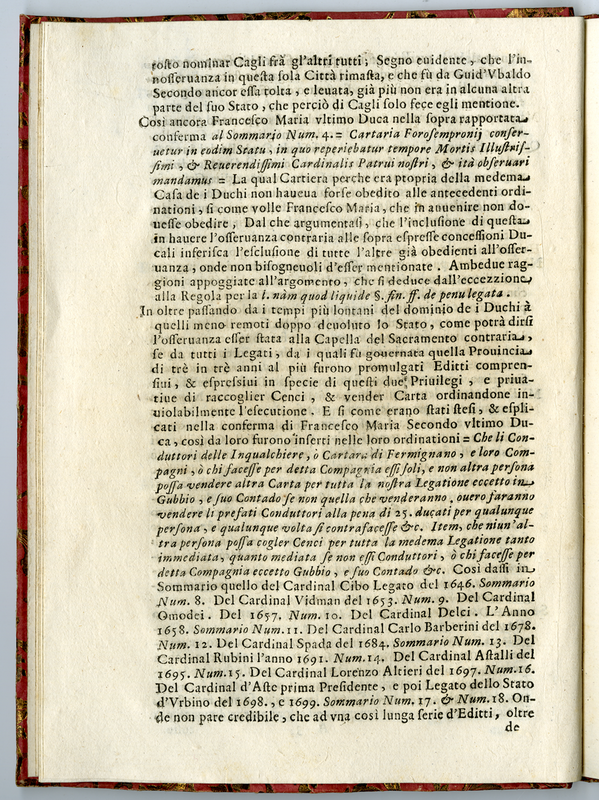 tosto nominar Cagli frà gl'altri tutti; Segno euidente, che l'in-
nosseruanza in questa sola Città rimasta, e che fù da Guid'Vbaldo
Secondo ancor essa tolta, e leuata, già più non era in alcuna altra
parte del suo Stato, che perciò di Cagli solo fece egli mentione.
Così ancora Francesco Maria vltimo Duca nella sopra rapportata
conferma al Sommario Num. 4. = Cartaria Forosempronij conser-
uetur in eodim Statu, in quo reperiebatur tempore Mortis Illustris-
simi, & Reuerendissimi Cardinalis Patrui nostri, & ità obseruari
mandamus = La qual Cartiera perche era propria della medema
Casa de i Duchi non haueua forse obedito alle antecedenti ordi-
nationi, si come volle Francesco Maria, che in auuenire non do-
uesse obedire, Dal che argumentasi, che l'inclusione di questa
in hauere l'osseruanza contraria alle sopra espresse concessioni Du-
cali inferisca l'esclusione di tutte l'altre già obedienti all'osser-
uanza, onde non bisogneuoli d'esser mentionate. Ambedue rag-
gioni appoggiate all'argomento, che si deduce dall'eccezzione
alla Regola per la l. nàm quod liquide §. fin. ff. de penu legata.
In oltre passando da i tempi più lontani del dominio de i Duchi à
quelli meno remoti doppo deuoluto lo Stato, come potrà dirsi
l'osseruanza esser stata alla Capella del Sacramento contraria,
se da tutti i Legati, da i quali fu gouernata quella Prouincia
di trè in trè anni al più furono promulgati Editti compren-
siui, & espressiui in specie di questi due Priuilegi, e priua-
tiue di raccoglier Cenci, & vender Carta ordinandone in-
uiolabilmente l'esecutione. E si come erano stati stesi, & espli-
cati nella conferma di Francesco Maria Secondo vltimo Du-
ca, così da loro furono inserti nelle loro ordinationi = Che li Con-
duttori delle Inqualchiere, ò Cartara di Fermignano, e loro Com-
pagni, ò chi facesse per detta Compagnia essi soli, e non altra persona
possa vendere altra Carta per tutta la nostra Legatione eccetto in
Gubbio, e suo Contado se non quella che venderanno, ouero faranno
vendere li prefati Conduttori alla pena di 25. ducati per qualunque
persona, e qualunque volta si contrafacesse &c. Item, che niun'al-
tra persona possa cogler Cenci per tutta la medema Legatione tanto
immediata, quanto mediata se non essi Conduttori, ò chi facesse per
detta Compagnia eccetto Gubbio, e suo Contado &c. Così dassi in
Sommario quello del Cardinal Cibo Legato del 1646. Sommario
Num. 8. Del Cardinal Vidman del 1653. Num. 9. Del Cardinal
Omodei. Del 1657. Num. 10. Del Cardinal Delci. L'Anno
1658. Sommario Num. 11. Del Cardinal Carlo Barberini del 1678.
Num. 12. Del Cardinal Spada del 1684. Sommario Num. 13. Del
Cardinal Rubini l'anno 1691. Num. 14. Del Cardinal Astalli del
1695. Num. 15. Del Cardinal Lorenzo Altieri del 1697. Num. 16.
Del Cardinal d'Aste prima Presidente, e poi Legato dello Stato
d'Vrbino del 1698., e 1699. Sommario Num. 17. & Num. 18. On-
de non pare credibile, che ad vna così lunga serie d'Editti, oltre
de